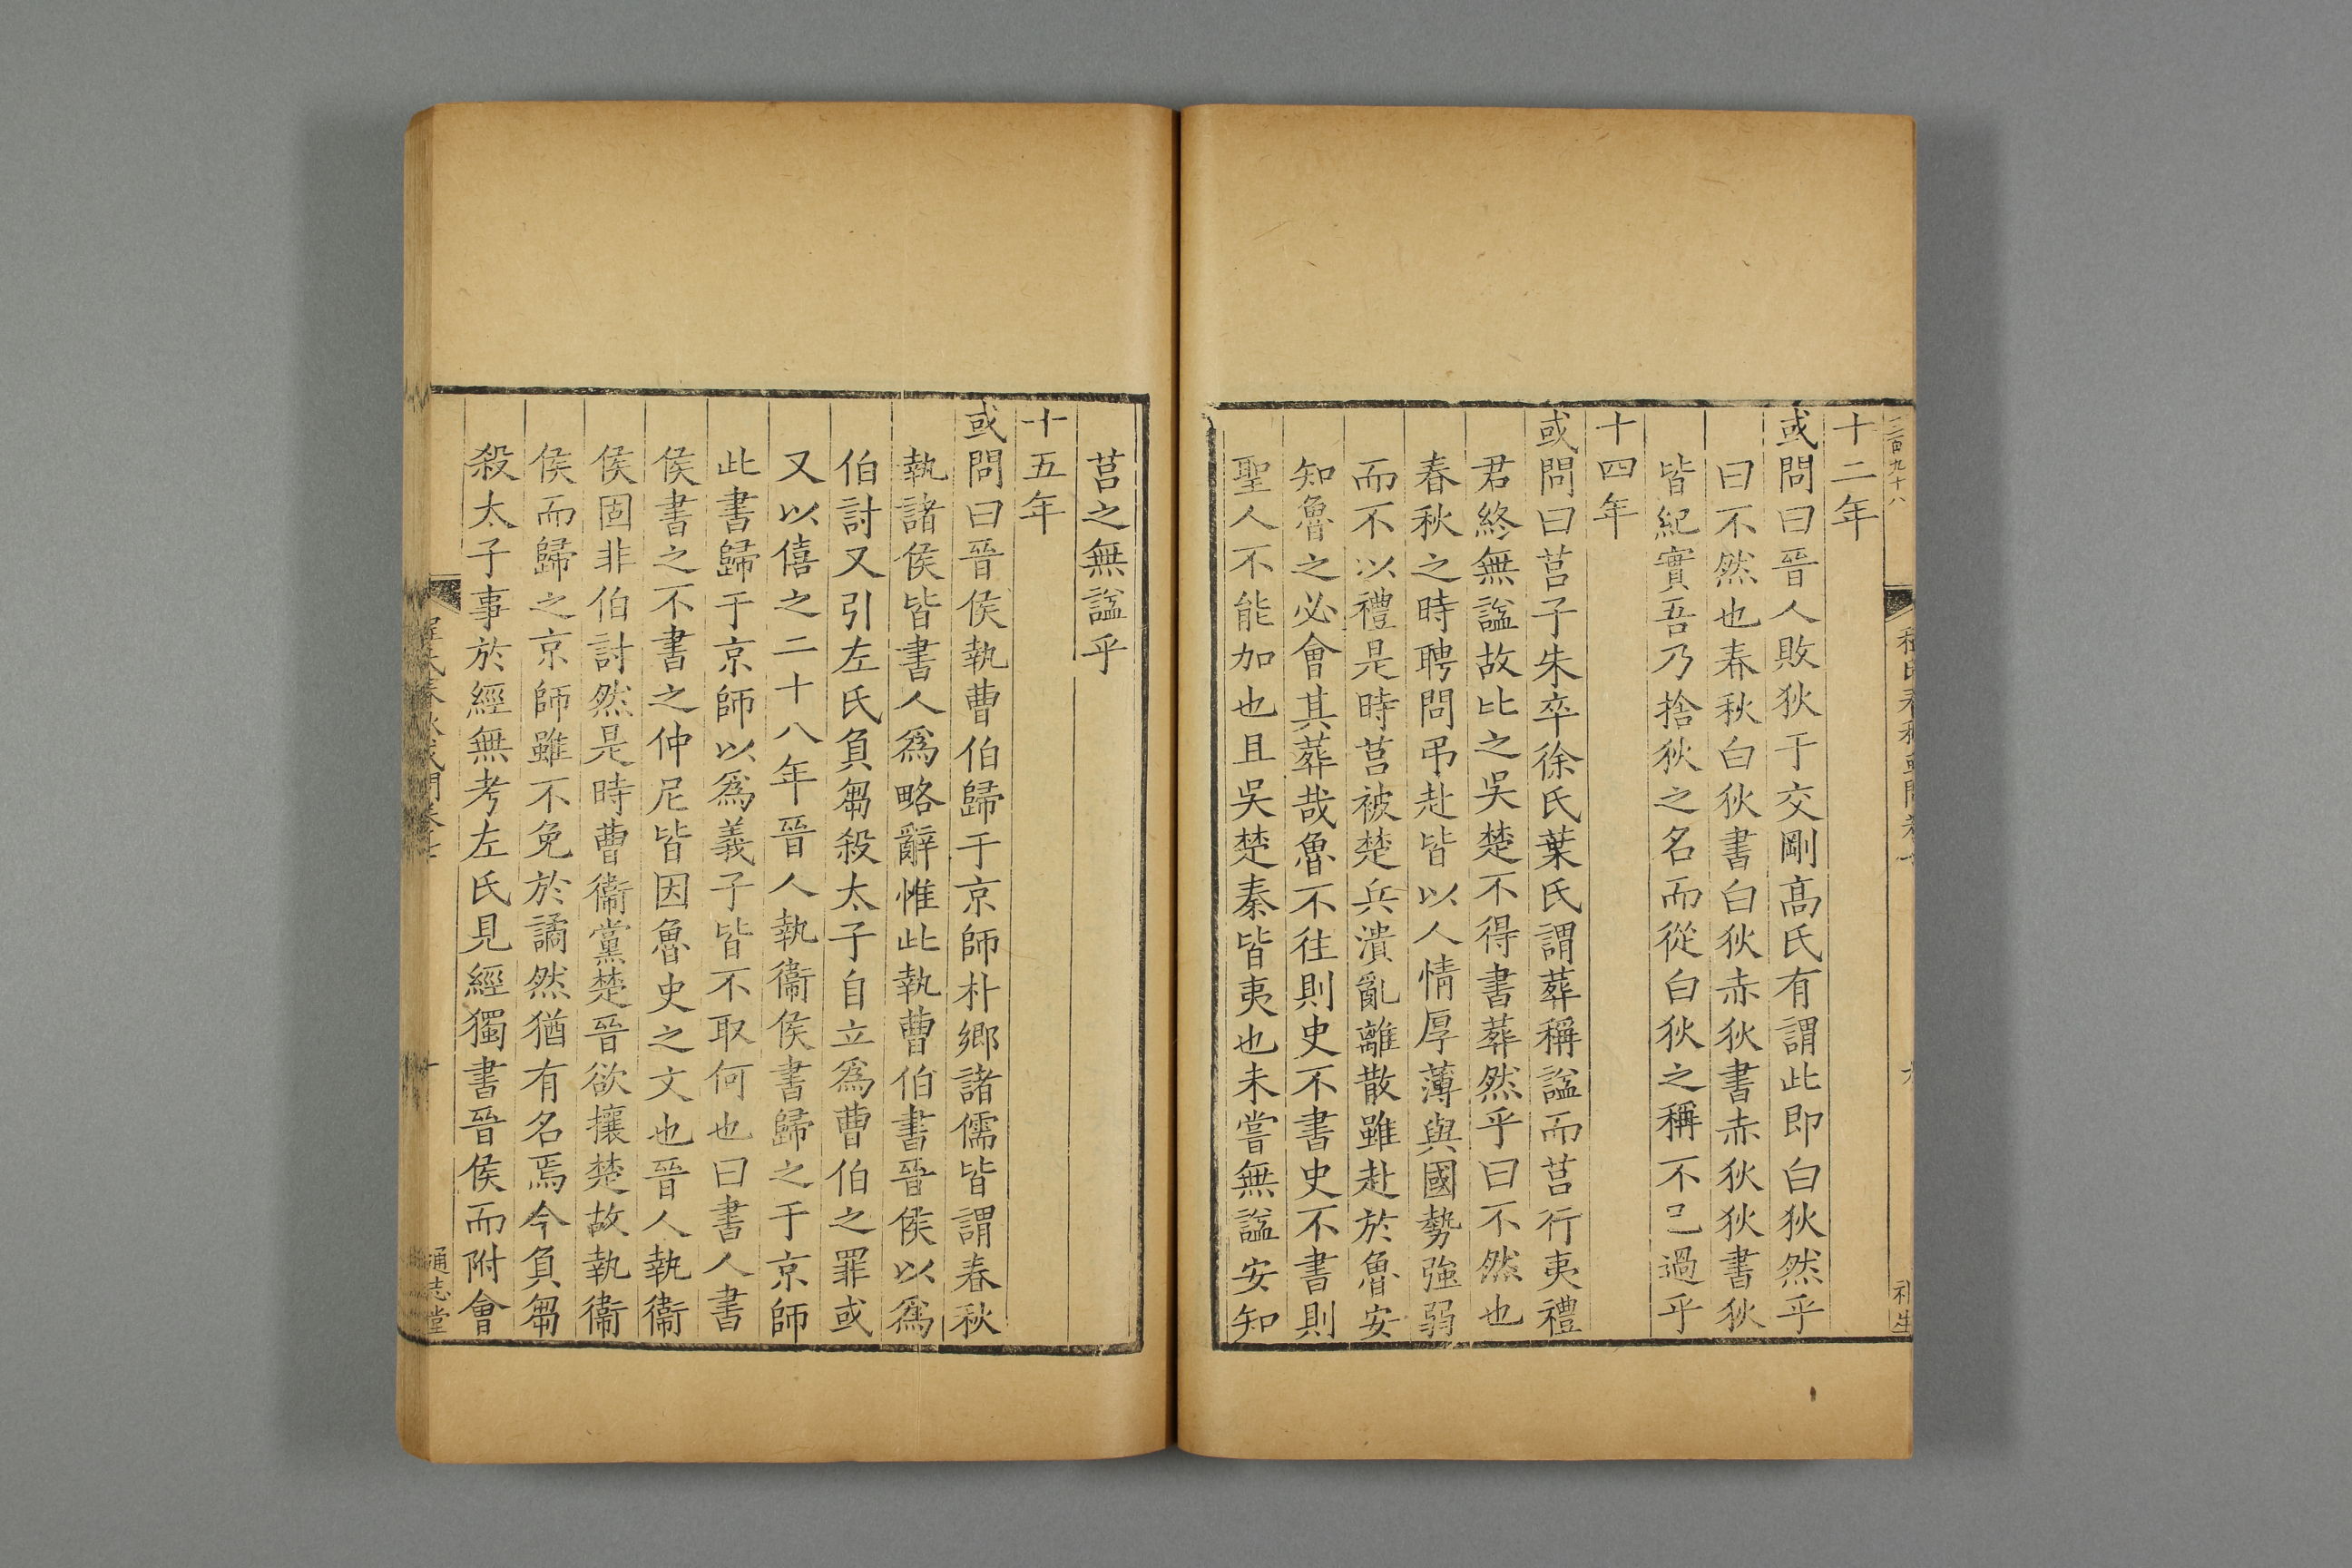 三百九十八
十二年
或問曰晉人敗狄于交剛髙氏有謂此即白狄然乎
曰不然也春秋白狄書白狄赤狄書赤狄狄書狄
皆紀實吾乃捨狄之名而從白狄之稱不已過乎
十四年
或問曰莒子朱卒徐氏葉氏謂葬稱諡而莒行夷禮
君終無諡故比之吳楚不得書葬然乎曰不然也
春秋之時聘問弔赴皆以人情厚薄與國勢強弱
而不以禮是時莒被楚兵潰亂離散雖赴於魯安
知魯之必會其葬哉魯不往則史不書史不書則
聖人不能加也且吳楚秦皆夷也未嘗無諡安知
莒之無諡乎
十五年
或問曰晉侯執曹伯歸于京師朴鄉諸儒皆謂春秋
執諸侯皆書人爲略辭惟此執曹伯書晉侯以爲
伯討又引左氏負芻殺太子自立爲曹伯之罪或
又以僖之二十八年晉人執衞侯書歸之于京師
此書歸于京師以爲義子皆不取何也曰書人書
侯書之不書之仲尼皆因魯史之文也晉人執衞
侯固非伯討然是時曹衞黨楚晉欲攘楚故執衞
侯而歸之京師雖不免於譎然猶有名焉今負芻
殺太子事於經無考左氏見經獨書晉侯而附會
程氏春秋或問卷七
十
通志堂